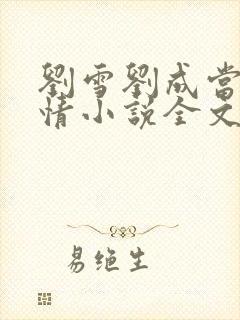 劉雪劉成當
情小說全文
易绝生